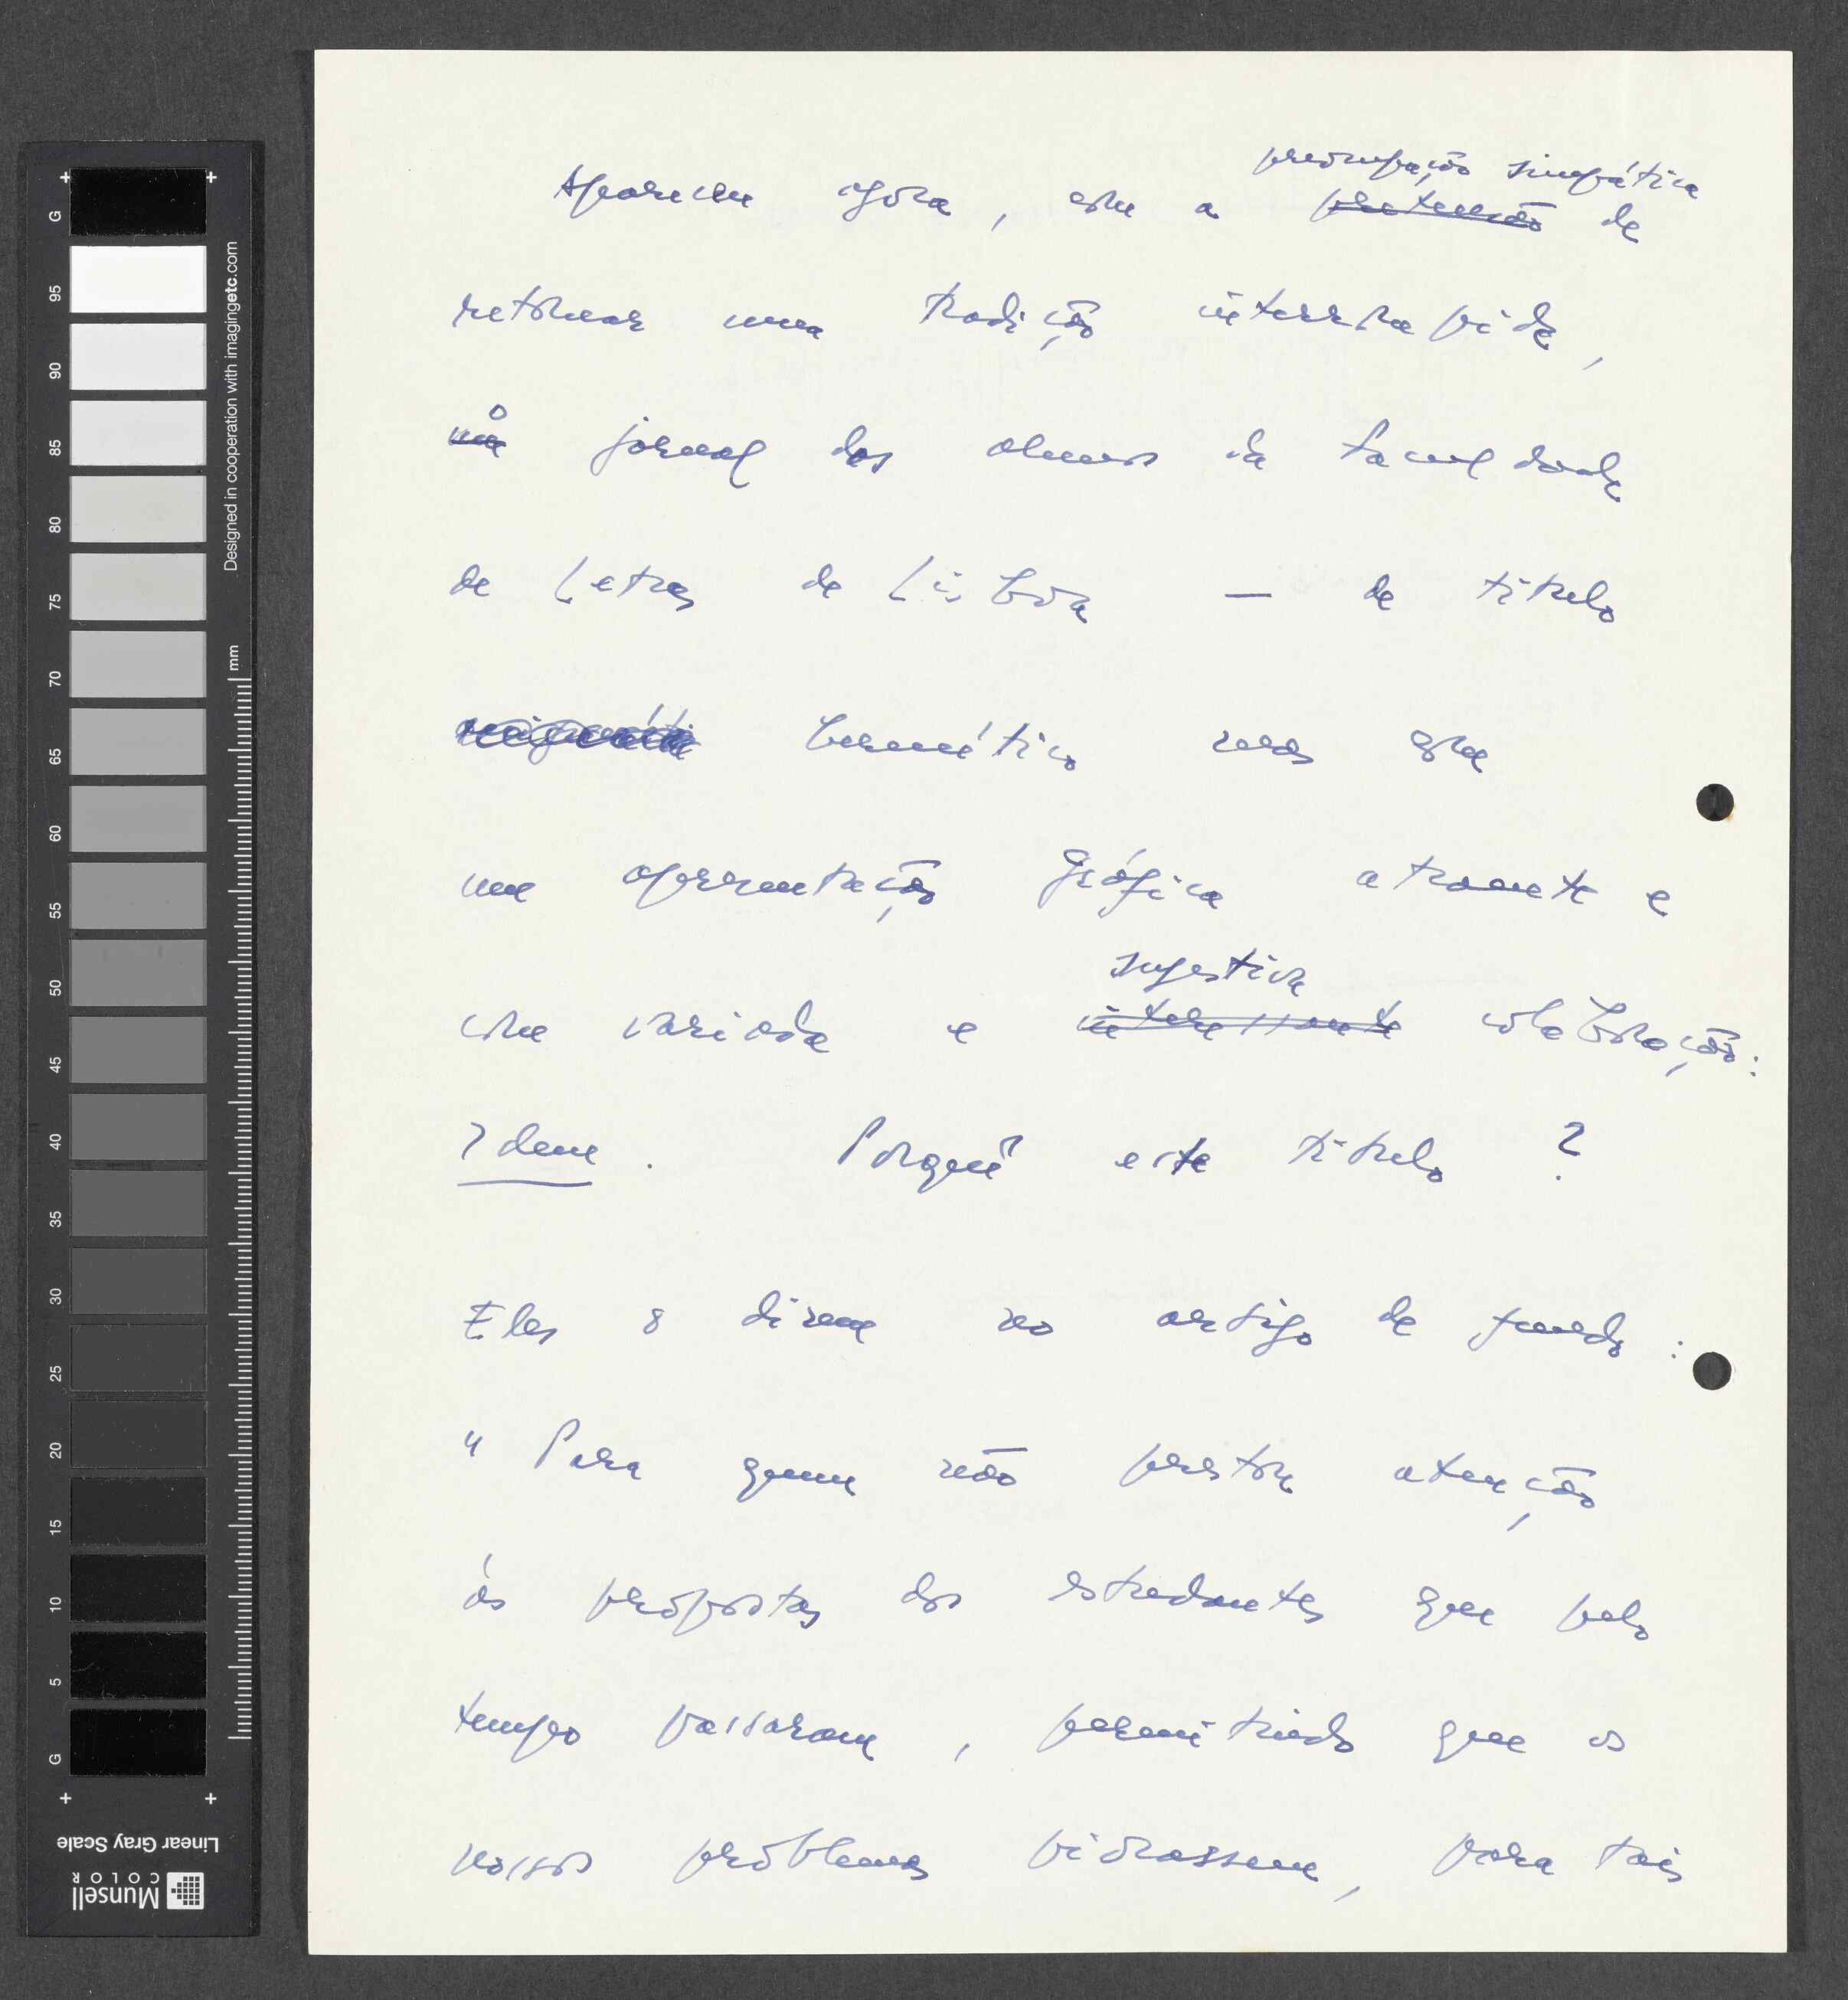 preocupação simpática
Apareceu agora, com a pretensão de
retomar uma tradição interrompida,
o jornal dos alunos da Faculdade
de Letras de Lisboa — de título
hermético mas com
uma apresentação gráfica atraente e
sugestiva
com variada e interessante colaboração:
Idem. Porquê este título?
Eles o dizem no artigo de fundo:
"Para quem não prestou atenção
às propostas dos estudantes que pelo
tempo passaram, permitindo que os
nossos problemas piorassem, para tais
G
95
90
85
80
75
70
65
60
55
50
45
40
35
30
25
20
15
10
5
G
Designed in cooperation with imagingetc.com
mm
Linear Gray Scale
Munsell
COLOR